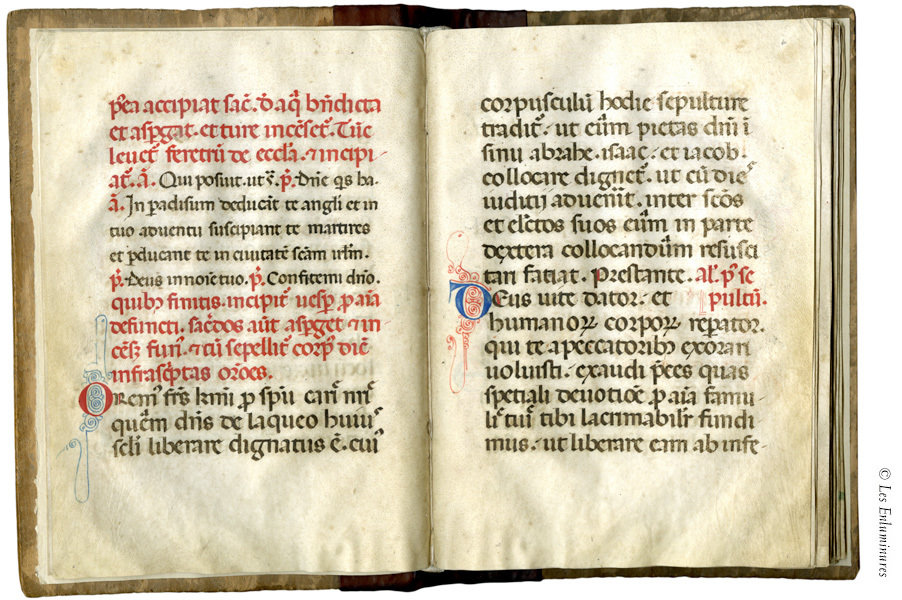 p̄ea accipiat sac̄. d̄ aq̄ bn̄dicta
et asp̄gat. et ture incēset᷒. Tūc
leuet᷒ feretrū de eccl̄a. ⁊ incipi-
at᷒. a᷒. Qui posuit. ut s᷒. p̄. Dn̄e q̄s ha-
a᷒. In p̄adisum deducāt te angli et in
tuo aduentu suscipiant te martires
et p̄ducant te in ciuitatē sc̄am irl̄m.
p̄. Deus in noīe tuo. p̄. Confitemi dn̄o.
quibꝰ finitis. incipit᷒ uesp̄. p̄ aīa
defuncti. sac̄dos aūt asp̄get ⁊ in-
cēs᷒ fun᷒. ⁊ cū sepellit᷒ corpꝰ dic̄
infrasc̄ptas or̄oes.
Oremꝰ fr̄s kmī p̄ spū carī nr̄i
quem dn̄s de laqueo huiꝰ
sc̄li liberare dignatus ē. cuiꝰ
corpusculū hodie sepulture
tradit᷒. ut eum pietas dn̄i ī
sinu abrahe. isaac. et iacob.
collocare dignet᷒. ut cū dies
iuditij aduenīt. inter sc̄os
et electos suos eum in parte
dextera collocandum resusci
tari fatiat. Prestante. al᷒. p᷒ se
pultū.
Deus uite dator. et
humanoꝝ corpoꝝ rep̄ator.
qui te a peccatoribꝰ exorari
uoluisti. exaudi p̄ces quas
spetiali deuotiōe p̄ aīa famu
li tui tibi lacrimabilr̄ fundi
mus. ut liberare eam ab infe-
© Les Enluminures